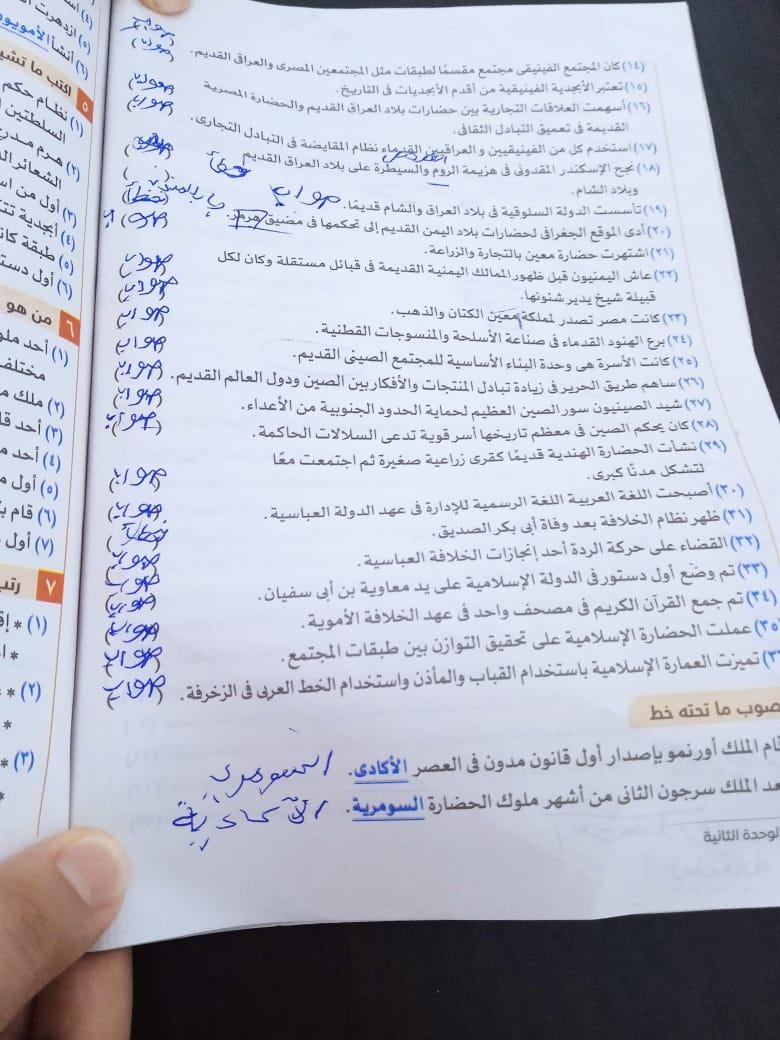 صواب
(١٤) كان المجتمع الفينيقى مجتمع مقسمًا لطبقات مثل المجتمعين المصرى والعراق القديم. (صواب)
(١٥) تعتبر الأبجدية الفينيقية من أقدم الأبجديات فى التاريخ. (صواب)
(١٦) أسهمت العلاقات التجارية بين حضارات بلاد العراق القديم والحضارة المصرية (صواب)
القديمة فى تعميق التبادل الثقافى.
(١٧) استخدم كل من الفينيقيين و العراقيين القدماء نظام المقايضة فى التبادل التجارى. (صواب)
(١٨) نجح الإسكندر المقدونى فى هزيمة الروم والسيطرة على بلاد العراق القديم خطأ
وبلاد الشام. ( )
(١٩) تأسست الدولة السلوقية فى بلاد العراق والشام قديمًا. صواب (خطأ)
(٢٠) أدى الموقع الجغرافى لحضارات بلاد اليمن القديم إلى تحكمها فى مضيق هرمز. باب المندب (صواب)
(٢١) اشتهرت حضارة معين بالتجارة والزراعة.
(٢٢) عاش اليمنيون قبل ظهور الممالك اليمنية القديمة فى قبائل مستقلة وكان لكل (صواب)
قبيلة شيخ يدير شئونها. (صواب)
(٢٣) كانت مصر تصدر لمملكة معين الكتان والذهب. (صواب)
(٢٤) برع الهنود القدماء فى صناعة الأسلحة والمنسوجات القطنية. (صواب)
(٢٥) كانت الأسرة هى وحدة البناء الأساسية للمجتمع الصينى القديم. (صواب)
(٢٦) ساهم طريق الحرير فى زيادة تبادل المنتجات والأفكار بين الصين ودول العالم القديم. (صواب)
(٢٧) شيد الصينيون سور الصين العظيم لحماية الحدود الجنوبية من الأعداء. (صواب)
(٢٨) كان يحكم الصين فى معظم تاريخها أسر قوية تدعى السلالات الحاكمة.
(٢٩) نشأت الحضارة الهندية قديمًا كقرى زراعية صغيرة ثم اجتمعت معًا
لتشكل مدنًا كبرى. (صواب)
(٣٠) أصبحت اللغة العربية اللغة الرسمية للإدارة فى عهد الدولة العباسية. (صواب)
(٣١) ظهر نظام الخلافة بعد وفاة أبى بكر الصديق. (خطأ)
(٣٢) القضاء على حركة الردة أحد إنجازات الخلافة العباسية. (صواب)
(٣٣) تم وضع أول دستور فى الدولة الإسلامية على يد معاوية بن أبى سفيان. (صواب)
(٣٤) تم جمع القرآن الكريم فى مصحف واحد فى عهد الخلافة الأموية. (صواب)
(٣٥) عملت الحضارة الإسلامية على تحقيق التوازن بين طبقات المجتمع. (صواب)
تميزت العمارة الإسلامية باستخدام القباب والمآذن واستخدام الخط العربى فى الزخرفة. (صواب)
صوب ما تحته خط
الملك أورنمو بإصدار أول قانون مدون فى العصر الأكادى. السومرى
الملك سرجون الثانى من أشهر ملوك الحضارة السومرية. الآكادية
الوحدة الثانية
(٦) أنشأ الأمويون
٥ اكتب ما تشير
(١) نظام حكم
السلطتين
(٢) هرم مدرج
الشعائر
(٣) أول من
(٤) أبجدية
(٥) طبقة
(٦) أول
٦ من هو
(١) أحد
مختلف
(٢) ملك
(٣) أحد
(٤) أحد
(٥) أول
(٦) قام
(٧) أول
٧ رتب
(١) *
*
(٢) *
*
(٣) *
*